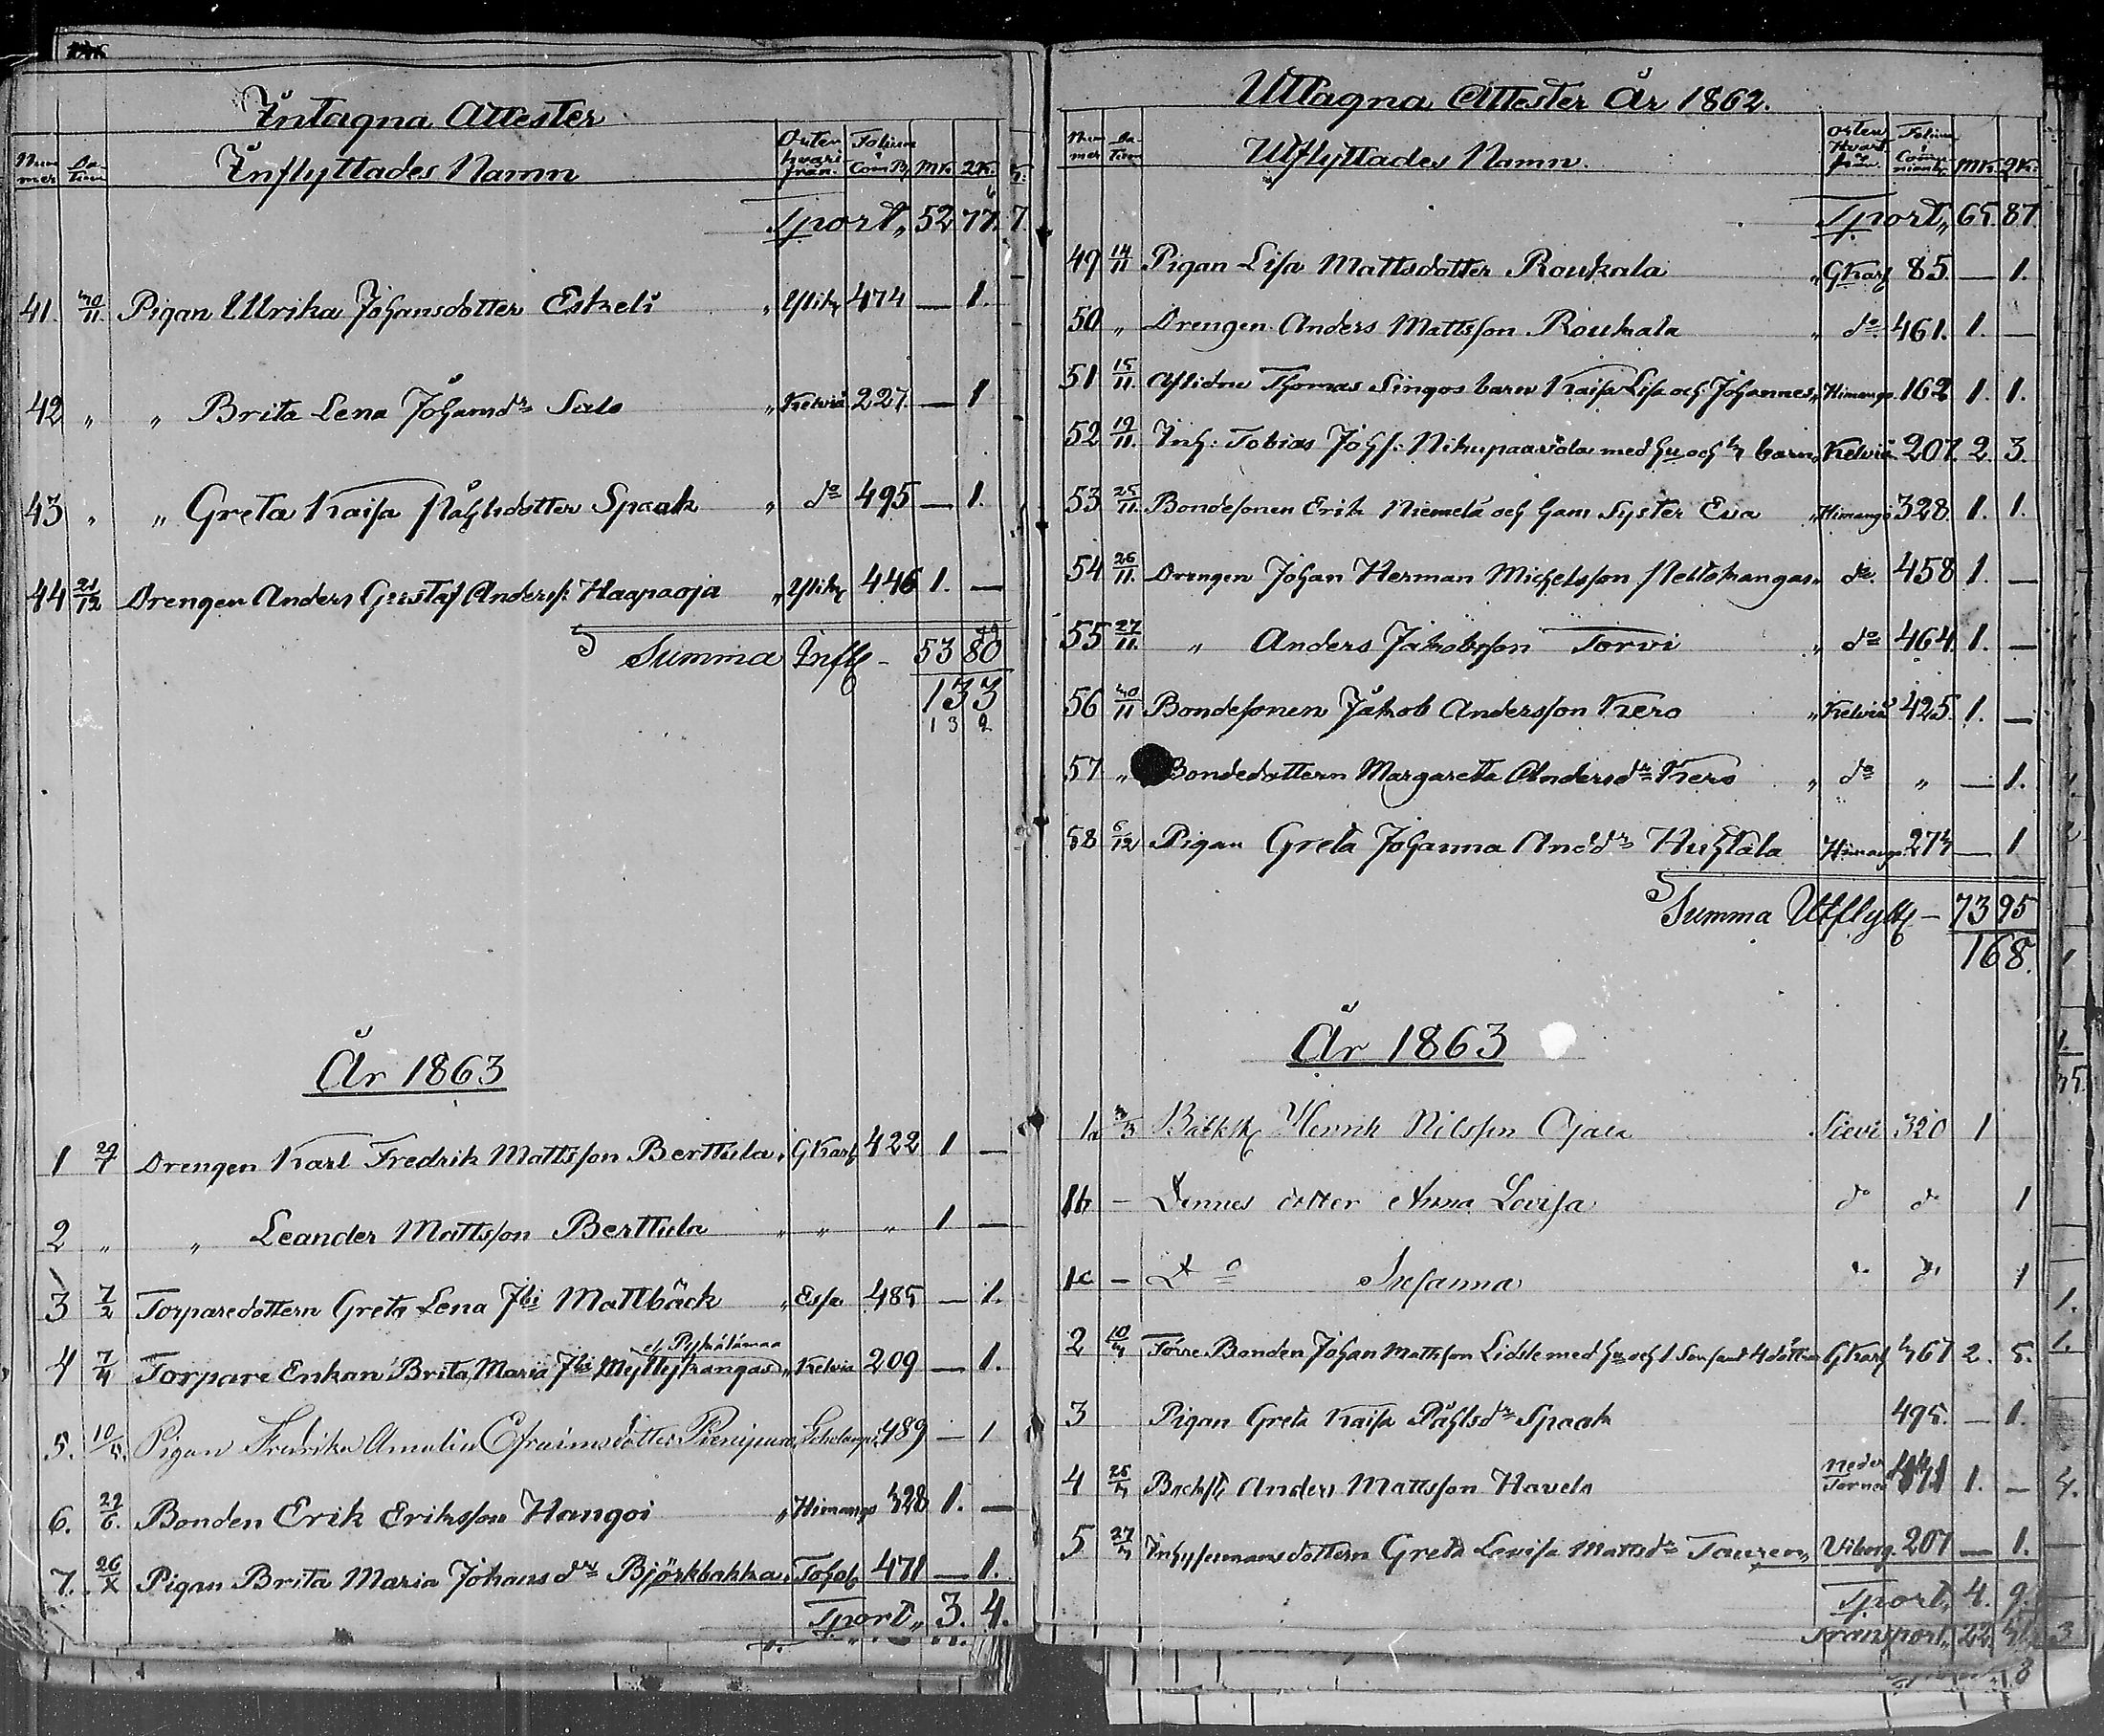 Intagna Attester
Nummer Datum Inflyttades Namn Orten hvarifrån. Folium i Com.B. MK. QK.
Tport,, 52 77. 7.
41. 30/11. Pigan Ulrika Johansdotter Eskeli „ Ylik 474 — 1.
42 „ „ Brita Lena Johansdr Salo „ Kelviå 227 — 1
43 „ „ Greta Kaisa Påhlsdotter Spaak „ do 495 — 1.
44 21/12 Drengen Anders Gustaf Anderss: Haapaoja „ Ylik 446 1. —
Summa Infl - 53 80
133
132
År 1863
1 Drengen Karl Fredrik Mattsson Berttula „ GKarl 422 1 —
2 „ „ Leander Mattsson Berttula „ „ „ 1 —
3 7/2 Torparedottern Greta Lena Mattbäck „ Esse 485 — 1.
4 7/4 Torpare Enkan Brita Maria Myllykangas „ Kelvia 209 — 1.
5. Pigan Fredrika Amalia Efraimsdotter 489 — 1
6. 29/6. Bonden Erik Eriksson Hangoi „ Himango 328 1. —
7. 26/X Pigan Brita Maria Johansdr Björkbakka „ Tohol 471 — 1.
Tport,, 3. 4.
Uttagna Attester År 1862.
Nummer Datum Utflyttades Namn. Orten Folium i MK. QK.
Tport,, 65. 87.
49 14/11 Pigan Lisa Mattsdotter Roukala „ GKarl 85. — 1.
50 „ Drengen Anders Mattsson Roukala „ do 461. 1. —
51 15/11. Aflidne Thomas Singos barn Kaisa Lisa och Johannes „ Himango 162 1. 1.
52 19/11. Inh: Tobias Johs: Nikupaavola med hu och 3 barn „ Kelviå 207. 2. 3.
53 25/11. Bondesonen Erik Niemelä och hans Syster Eva „ Himango 328. 1. 1.
54 26/11. Drengen Johan Herman Michelsson „ do. 458 1. —
55 27/11. „ Anders Jakobsson Torvi „ do 464. 1. —
56 30/11 Bondesonen Jakob Andersson Kero „ Kelviå 425. 1. —
57 „ Bondedottern Margareta Andersdr Kero „ do „ — 1.
58 5/12 Pigan Greta Johanna Andrdr Huhtala Himango 273 — 1
Summa Utflytt - 73 95
168.
År 1863
1a Henrik Nilsson Ojala Sievi 320 1
1b — Dennes dotter Anna Lovisa do do 1
1c — Do Susanna do do 1
2 10/3 Förre Bonden Johan Mattsson Lidde med hu och 1 Son samt 4 döttrar GKarl 367 2. 5.
3 Pigan Greta Kaisa Påhlsdr Spaak 495. — 1.
4 25/3 Anders Mattsson Havela Neder Torneå 1. —
5 27/3 Inhysesmansdottern Greta Lovisa Matsdr Tauren „ Viborg. 207 — 1.
Tport,, 4. 9.
Transport,, 22.